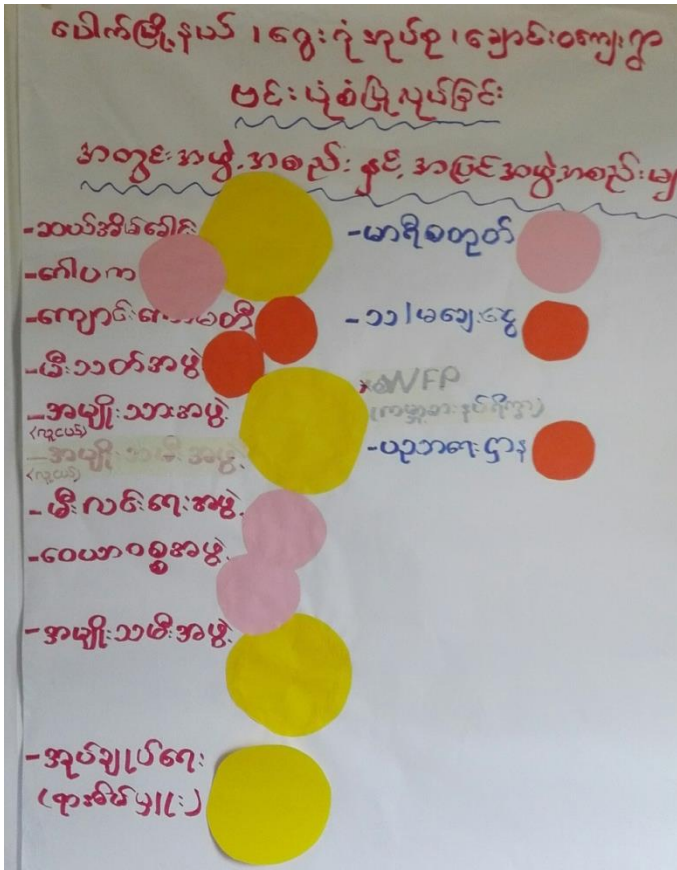 ပေါက်မြို့နယ် ၊ ရွေးဂုံအုပ်စု ၊ ချောင်းဝကျေးရွာ
ဗင်းပုံစံပြုလုပ်ခြင်း
အတွင်းအဖွဲ့အစည်း နှင့် အပြင်အဖွဲ့အစည်းမျ
-ဆယ်အိမ်ခေါင်း
-ဂေါပက
-ကျောင်းကော်မတီ
-မီးသတ်အဖွဲ့
-အမျိုးသားအဖွဲ့
(လူငယ်)
-အမျိုးသမီးအဖွဲ့
(လူငယ်)
-မီးလင်းရေးအဖွဲ့
-ဝေယျာဝစ္စအဖွဲ့
-အမျိုးသမီးအဖွဲ့
-အုပ်ချုပ်ရေး
(ရာအိမ်မှူး)
-မာရီစတုတ်
-သ၊မချေးငွေ
WFP
-ပညာရေးဌာန